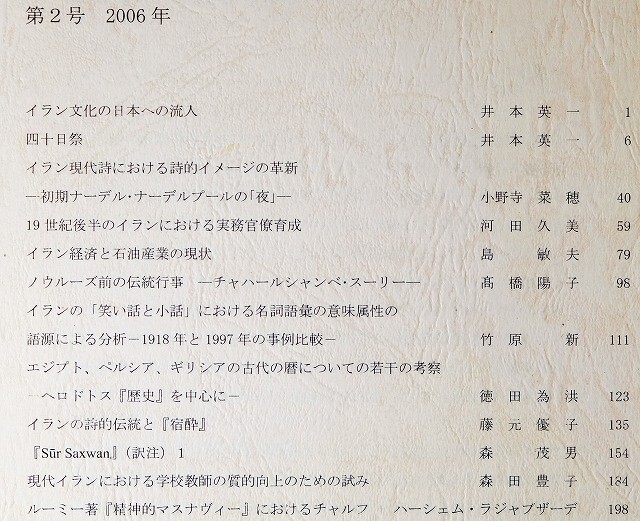 第２号　2006 年
イラン文化の日本への流入　井 本 英 一　1
四十日祭　井 本 英 一　6
イラン現代詩における詩的イメージの革新
―初期ナーデル・ナーデルプールの「夜」―　小野寺 菜 穂　40
19 世紀後半のイランにおける実務官僚育成　河 田 久 美　59
イラン経済と石油産業の現状　島 敏 夫　79
ノウルーズ前の伝統行事 ―チャハールシャンベ・スーリー―　髙 橋 陽 子　98
イランの「笑い話と小話」における名詞語彙の意味属性の
語源による分析－1918 年と 1997 年の事例比較－　竹 原 新　111
エジプト、ペルシア、ギリシアの古代の暦についての若干の考察
－ヘロドトス『歴史』を中心に－　徳 田 為 洪　123
イランの詩的伝統と『宿酔』　藤 元 優 子　135
『Sūr Saxwan』（訳注） 1　森 茂 男　154
現代イランにおける学校教師の質的向上のための試み　森 田 豊 子　184
ルーミー著『精神的マスナヴィー』におけるチャルフ　ハーシェム・ラジャブザーデ　198